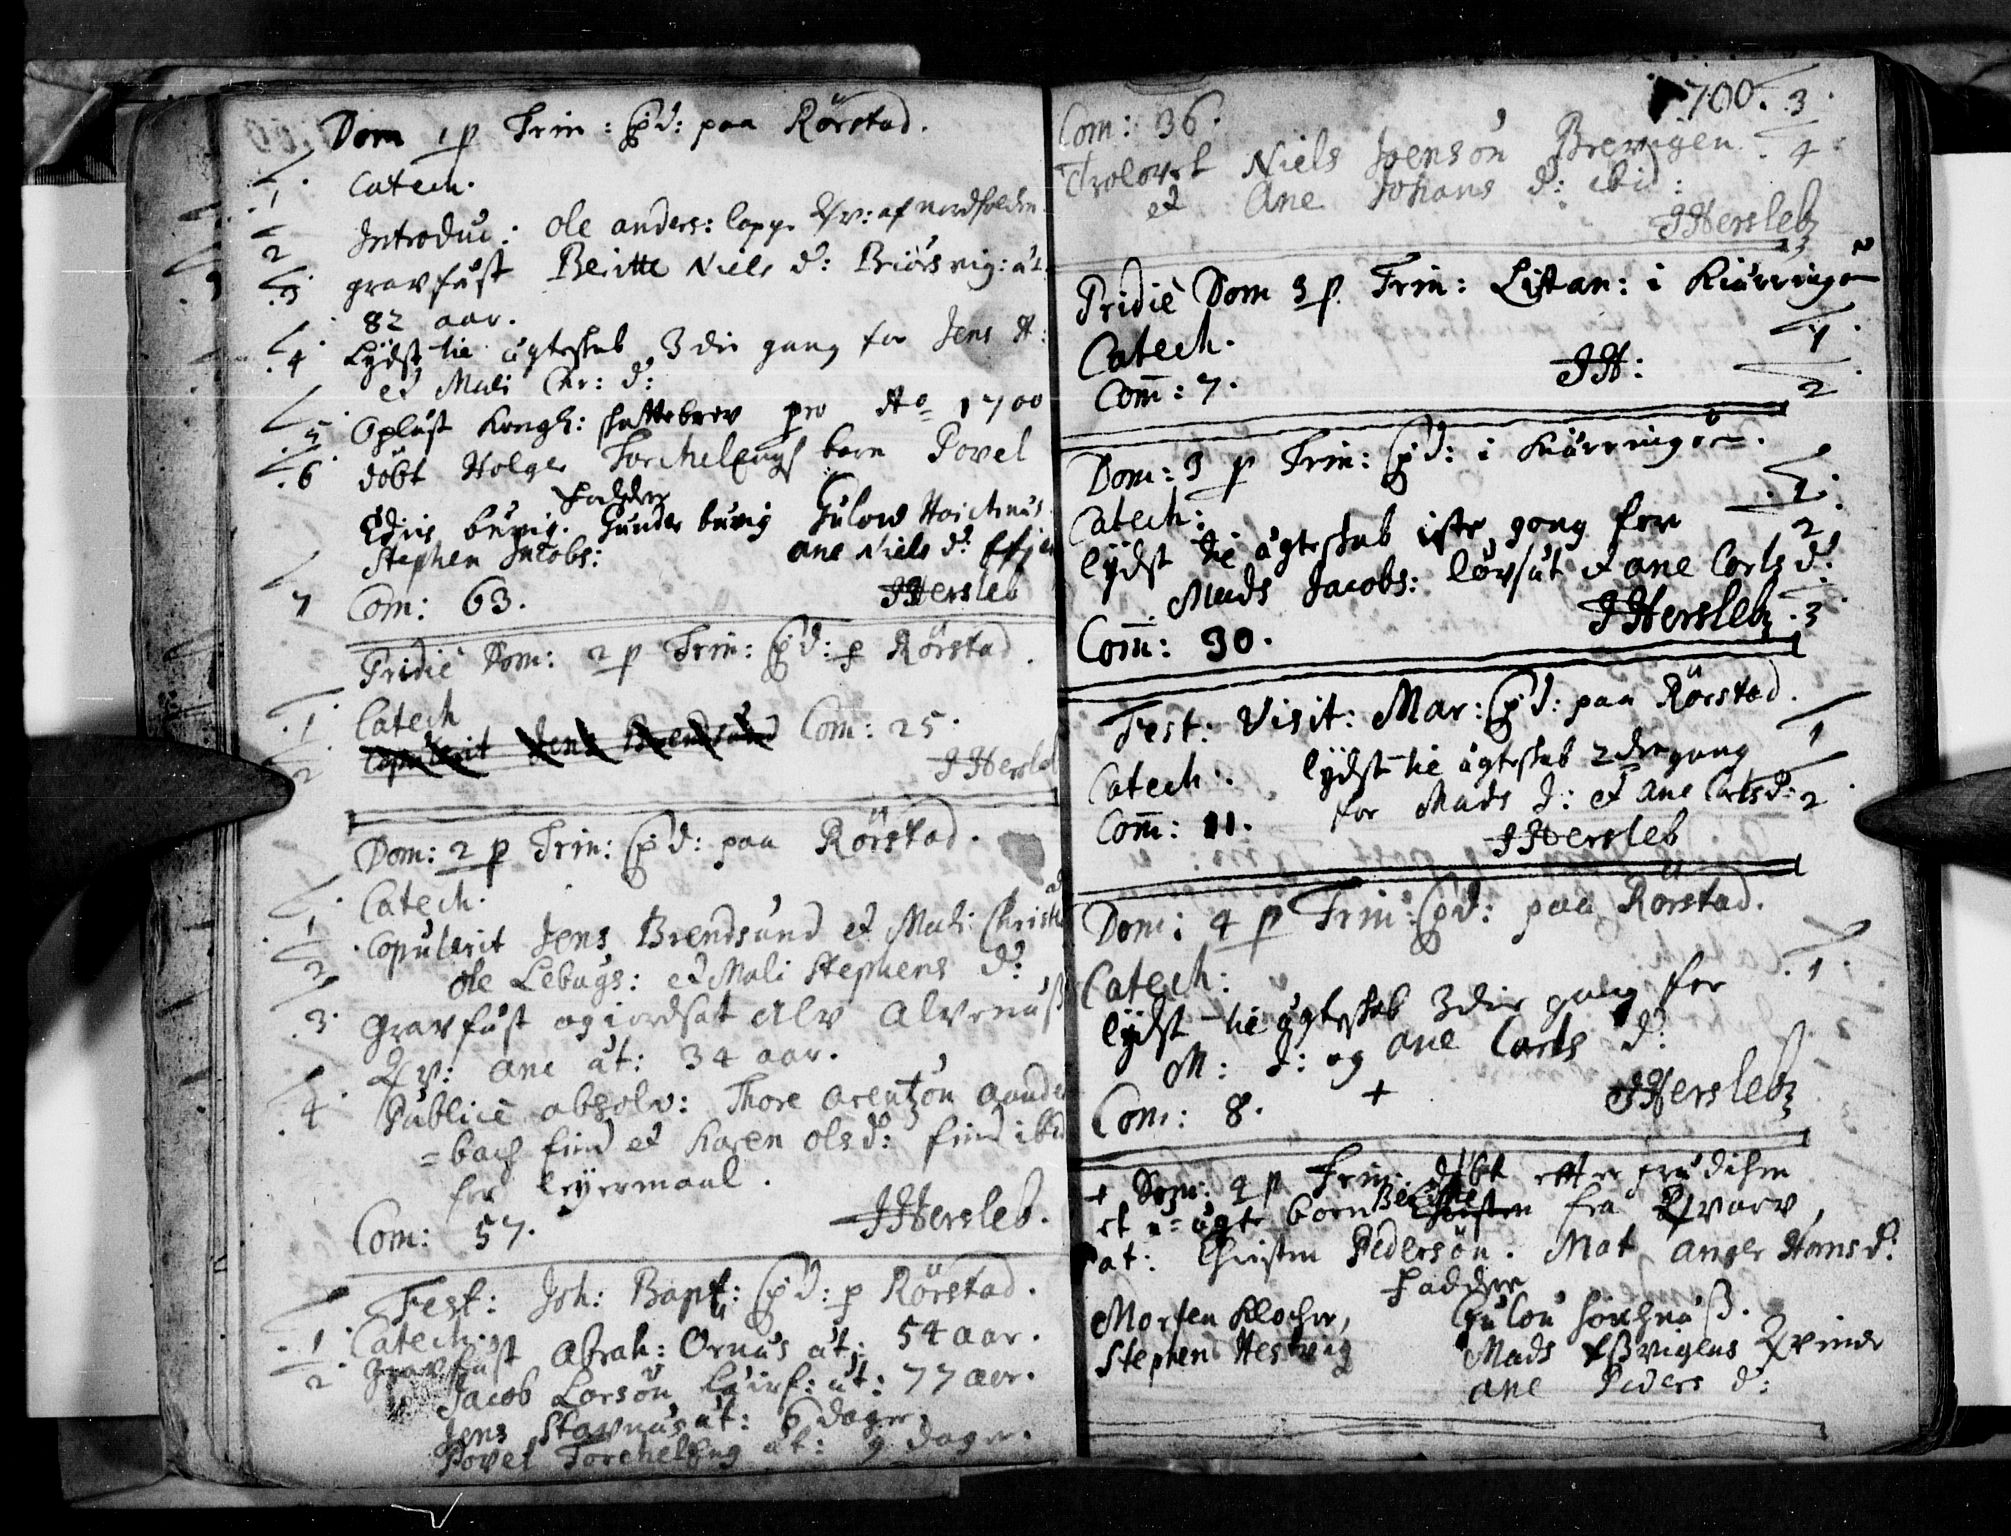 Dom 1 p Trin: Cpd: paa Rörstad.
1 Catech.
2 Introduc: Ole anders: lapp Qv: af nordfolden
3 gravfäst Beritte Niels d: Briörsvig: æt
82 aar.
4 Lÿdst til ægteskab 3die gang for Jens A:
et Mali Chr: d:
5 Opläst Kongl: skattebrev pro Ao 1700
6 döbt Holger Torchelengs barn Povel
Fadder
buvig. Gunder buvig Gulow
Stephen Jacobs: ane Niels d:
7 Com: 63. JHersleb
Pridiè Dom: 2 p Trin: Cpd: p Rörstad.
1 Catech
2 Copulerit Jens Brendsund Com: 25.
JHersleb
Dom: 2 p Trin: Cpd: paa Rörstad.
1 Catech.
2 Copulerit Jens Brendsund et Mali Christ
Ole Lebugs: et Mali Stephens d:
3 gravfäst og iordsat Alv Alvenäs
Qv: Ane æt: 34 aar.
4 Publicè absolv: Thore Arentzön
=bach find et Karen Ols d: find ibid
for leÿermaal.
Com: 57. JHersleb.
Fest: Joh: Bapt: Cpd: p Rörstad.
1 Catech.
2 gravfäst Abrah: Ornæs æt: 54 aar.
Jacob Larsön æt: 77 aar.
Jens Stavnæs æt: 6 dager
Povel Torcheleng æt: 9 dager.
1700.
Com: 36. 3
Trolovet Niels Jensön Brevigen 4
et Ane Johans d: ibid:
JHersleb
Pridiè Dom 3 p. Trin: Listan: i Kiærringö
Catech. 1
Com: 7. JH: 2
Dom: 3 p Trin: Cpd: i Kiærringöe.
Catech: 1
lÿdst til ægteskab iste gang for 2
Mads Jacobs: Lövsæt et ane Carls d:
Com: 30. JHersleb 3
Fest: Visit: Mar: Cpd: paa Rörstad.
Catech: lÿdst til ægteskab 2den gang 1
Com: 11. for Mads J: et Ane Carls d: 2
JHersleb
Dom: 4 p Trin: Cpd: paa Rörstad.
Catech: 1
lÿdst til ægteskab 3die gang for
M: J: og ane Carls d:
Com: 8. + JHersleb
+ Dom: 4 p Trin: döbt etter prædiken
et u=ægte barn Beritte Christen fra Qvarv,
Pat: Christen Pedersön. Mat Anger Hans d:
Fadder
Morten Klocher, Gulou
Stephen Hestvig Mads Qvinde
ane Peders d: